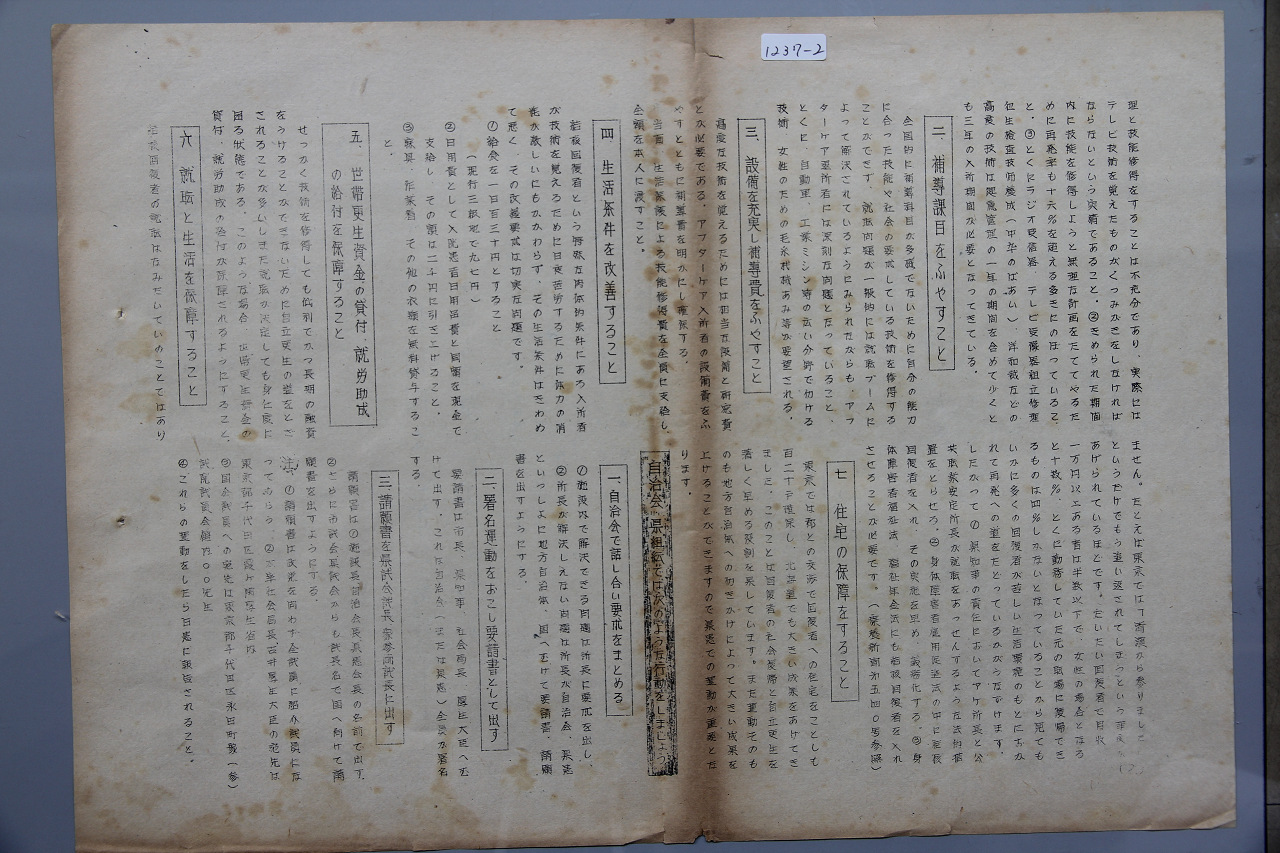 1237-2
理と技能修得をすることは不充分であり、実際には
テレビ技術を覚えたものがくつみがきをしなければ
ならないという実績であること。②きめられた期間
内に技能を修得しようと無理な計画をたててやるた
めに再発率も十六％を超える多きにのぼっているこ
と。③とくにラジオ受信器、テレビ受像器組立修理
衛生検査技師養成（中卒のばあい）、洋和裁などの
高度の技術は健康管理の一年の期間を含めて少くと
も三年の入所期間が必要となってきている。
二、補導課目をふやすこと
全国的に補導科目が多種でないために自分の能力
に合った技能や社会の要求している技術を修得する
ことができず、就職問題が一般的には就職ブームに
よって解決されているようにみられながらも、アフ
ターケア退所者には深刻な問題となっていること、
とくに、自動車、工業ミシン等の広い分野で働ける
技術、女性のための毛糸機械あみ等が要望される。
三、設備を充実し補導費をふやすこと
高度な技術を覚えるためには相当な設備と研究費
とが必要である。アフターケア入所者の設備費をふ
やすとともに補導費を明かにし確保する。
当面、生活保護による技能修得費を全員に支給し、
全額を本人に渡すこと。
四、生活条件を改善すること
結核回復者という特殊な肉体的条件にある入所者
が技術を覚えるために日夜苦労するために体力の消
耗が激しいにもかかわらず、その生活条件はきわめ
て悪く、その改善要求は切実な問題です。
①給食を一日百三十円とすること
（現行三級地で九七円）
②日用費として入院患者日用品費と同額を現金で
支給し、その額は二千円に引き上げること。
③寝具、作業着、その他の衣類を無料貸与するこ
と。
五、世帯更生資金の貸付、就労助成
の給付を保障すること
せっかく技術を修得しても低利でかつ長期の融資
をうけることができないために自立更生の道をとざ
されることが多いしまた就職が決定しても身仕度に
困る状態である。このような場合、世帯更生資金の
貸付、就労助成の給付が保障されるようにすること。
六、就職と生活を保障すること
結核回復者の就職はなみたいていのことではあり
ません。たとえば東京では「清瀬から参りました」
というだけでもう追い返されてしまうという事実が
あげられているほどです。だいたい回復者で月収
一万円以上ある者は半数以下で、女性の場合となる
と十数％、とくに勤務していた元の職場に復帰でき
るものは四％しかないとなっていることから見ても
いかに多くの回復者が苦しい生活環境のもとにおか
れて再発への道をたどっているかがうなづけます。
したがって①県知事の責任においてアケ所長と公
共職業安定所長が就職をあっせんするような法的措
置をとらせろ。②身体障害者雇用促進法の中に結核
回復者を入れ、その実施を早め、義務化する③身
体障害者福祉法、福祉年金法にも結核回復者を入れ
させることが必要です。（療養所新法五四〇号参照）
七、住宅の保障をすること
東京では都との交渉で回復者への住宅をことしも
百二十戸確保し、北海道でも大きい成果をあげてき
ました。このことは回復者の社会復帰と自立更生を
著しく早める役割を果しています。また運動そのも
のも地方自治体への働きかけによって大きい成果を
上げることができますので県患での運動が重要とな
ります。
自治会、県組織では次のような行動をしましょう
一、自治会で話し合い要求をまとめる
①施設内で解決できる問題は所長に要求を出し、
②所長が解決しえない問題は所長が自治会、県患
といっしよに地方自治体、国へむけて要請書、請願
書を出すようにする。
二、署名運動をおこし要請書として出す
要請書は市長、県知事、社会局長、厚生大臣へむ
けて出す。これは自治会（または県患）全員が署名
する。
三、請願書を県議会議長、衆参両議長に出す
請願書は①施設長自治会長県患会長の名前で出す。
②さらに市議会県議会からも議長名で国へ向けて請
願書を出すようにする。
注、①請願書は政党を向わず全議員に紹介議員にな
ってもらう。②大卒社会局長古井厚生大臣の宛先は
東京都千代田区霞ヶ関厚生省内
③国会議員への宛先は東京都千代田区永田町衆（参）
議院議員会館内〇〇先生
④これらの運動をしたら日患に報告されること。